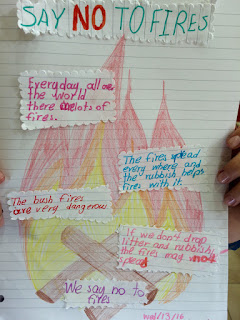 SAY NO TO FIRES
Everyday, all over
the world
there are lots of
fires.
The fires spread
every where and
the rubbish helps
fires with it.
The bush fires
are very dangerous.
If we don't drop
litter and rubbish,
the fires may not
We say no to
fires